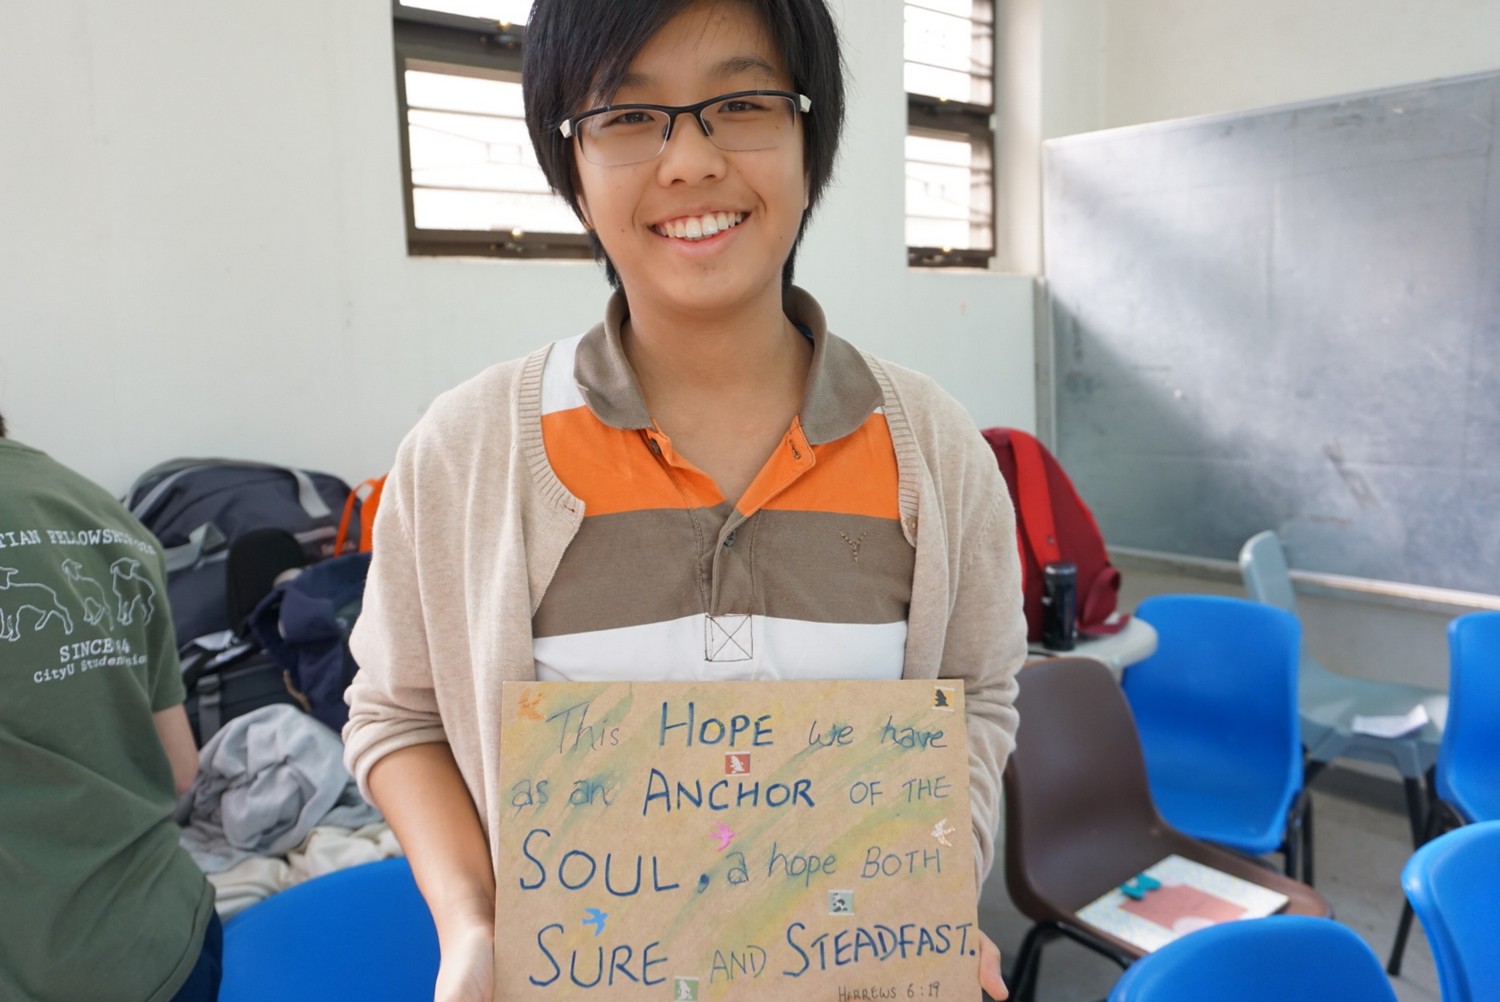 TIAN FELLOWSHIP
SINCE
CityU Student
This HOPE we have
as an ANCHOR OF THE
SOUL, a hope BOTH
SURE AND STEADFAST.
HEBREWS 6:19